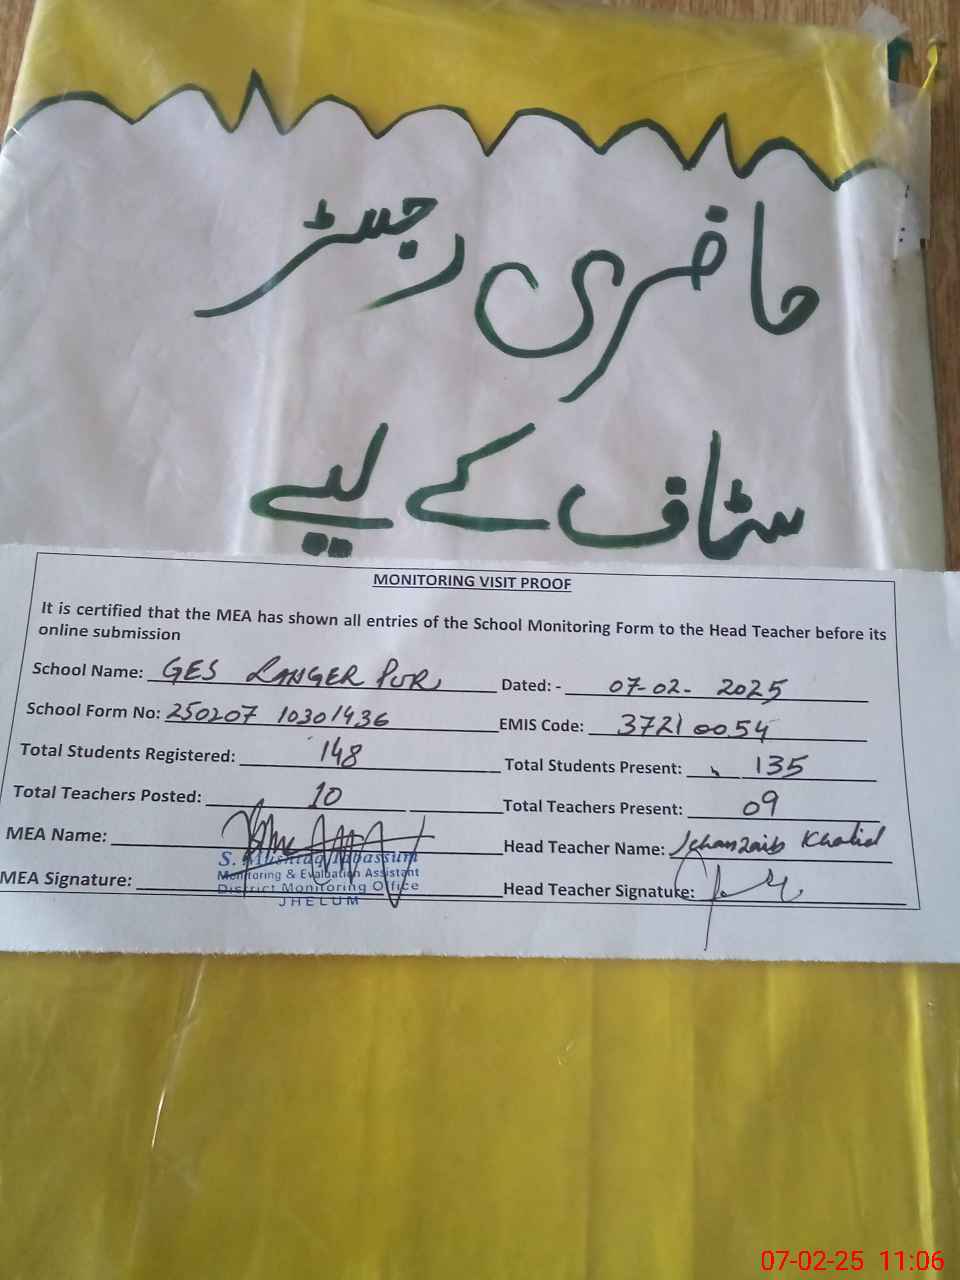 حاضری رجسٹر
سٹاف کے لیے
MONITORING VISIT PROOF
It is certified that the MEA has shown all entries of the School Monitoring Form to the Head Teacher before its
online submission
School Name: GES LANGER PUR Dated: - 07-02- 2025
School Form No: 250207 10301436 EMIS Code: 37210054
Total Students Registered: 148 Total Students Present: 135
Total Teachers Posted: 10 Total Teachers Present: 09
MEA Name: Head Teacher Name: Jehanzaib Khalid
S. Mushtaq Tabassum
Monitoring & Evaluation Assistant
MEA Signature: Head Teacher Signature:
District Monitoring Office
JHELUM
07-02-25 11:06